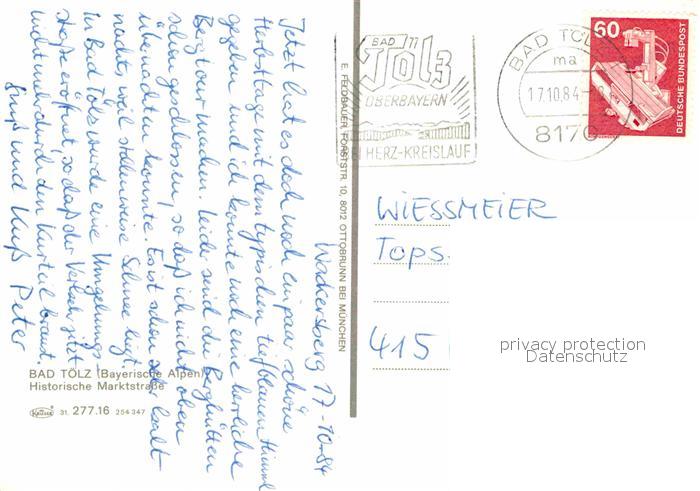 Wackersberg 17-10-84
Jetzt hat es doch noch ein paar schöne
Herbsttage mit dem typischen tiefblauen Himmel
gegeben und ich konnte noch eine herrliche
Bergtour machen. Leider sind die Berghütten
schon geschlossen, so daß ich nicht oben
übernachten konnte. Es ist schon sehr kalt
nachts, weil stellenweise Schnee liegt.
In Bad Tölz wurde eine Umgehungs
straße eröffnet, so daß der Verkehr jetzt
nicht mehr durch den Kurteil braust.
Gruß und Kuß Peter
BAD TÖLZ (Bayerische Alpen)
Historische Marktstraße
31. 277.16 254 347
E. FELDBAUER, FORSTSTR. 10, 8012 OTTOBRUNN BEI MÜNCHEN
BAD
Tölz
OBERBAYERN
HERZ-KREISLAUF
BAD TÖLZ
ma
17.10.84
8170
60
DEUTSCHE BUNDESPOST
WIESSMEIER
Tops.
415
privacy protection
Datenschutz